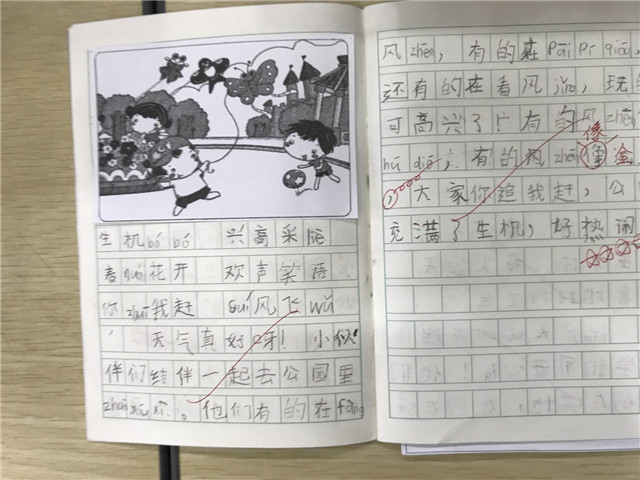 生机bó bó 兴高采liè
春nuǎn花开 欢声笑语
你zhuī我赶 suí风飞wǔ
天气真好呀！小伙
伴们结伴一起去公园里
wán。他们有的在fàng
风zhēn，有的在pāi pí qiú，
还有的在看风jǐng，玩的
可高兴了！有的风zhēn
像
hú dié，有的风zhēn像金
，大家你追我赶，公
充满了生机，好热闹